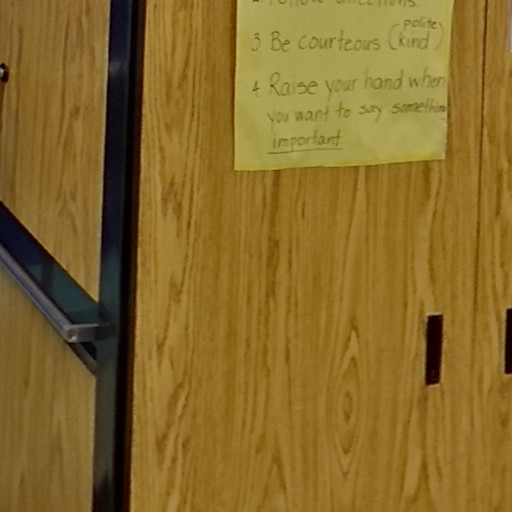 2. Follow directions.
polite
3. Be courteous (kind)
4. Raise your hand when
you want to say something
important